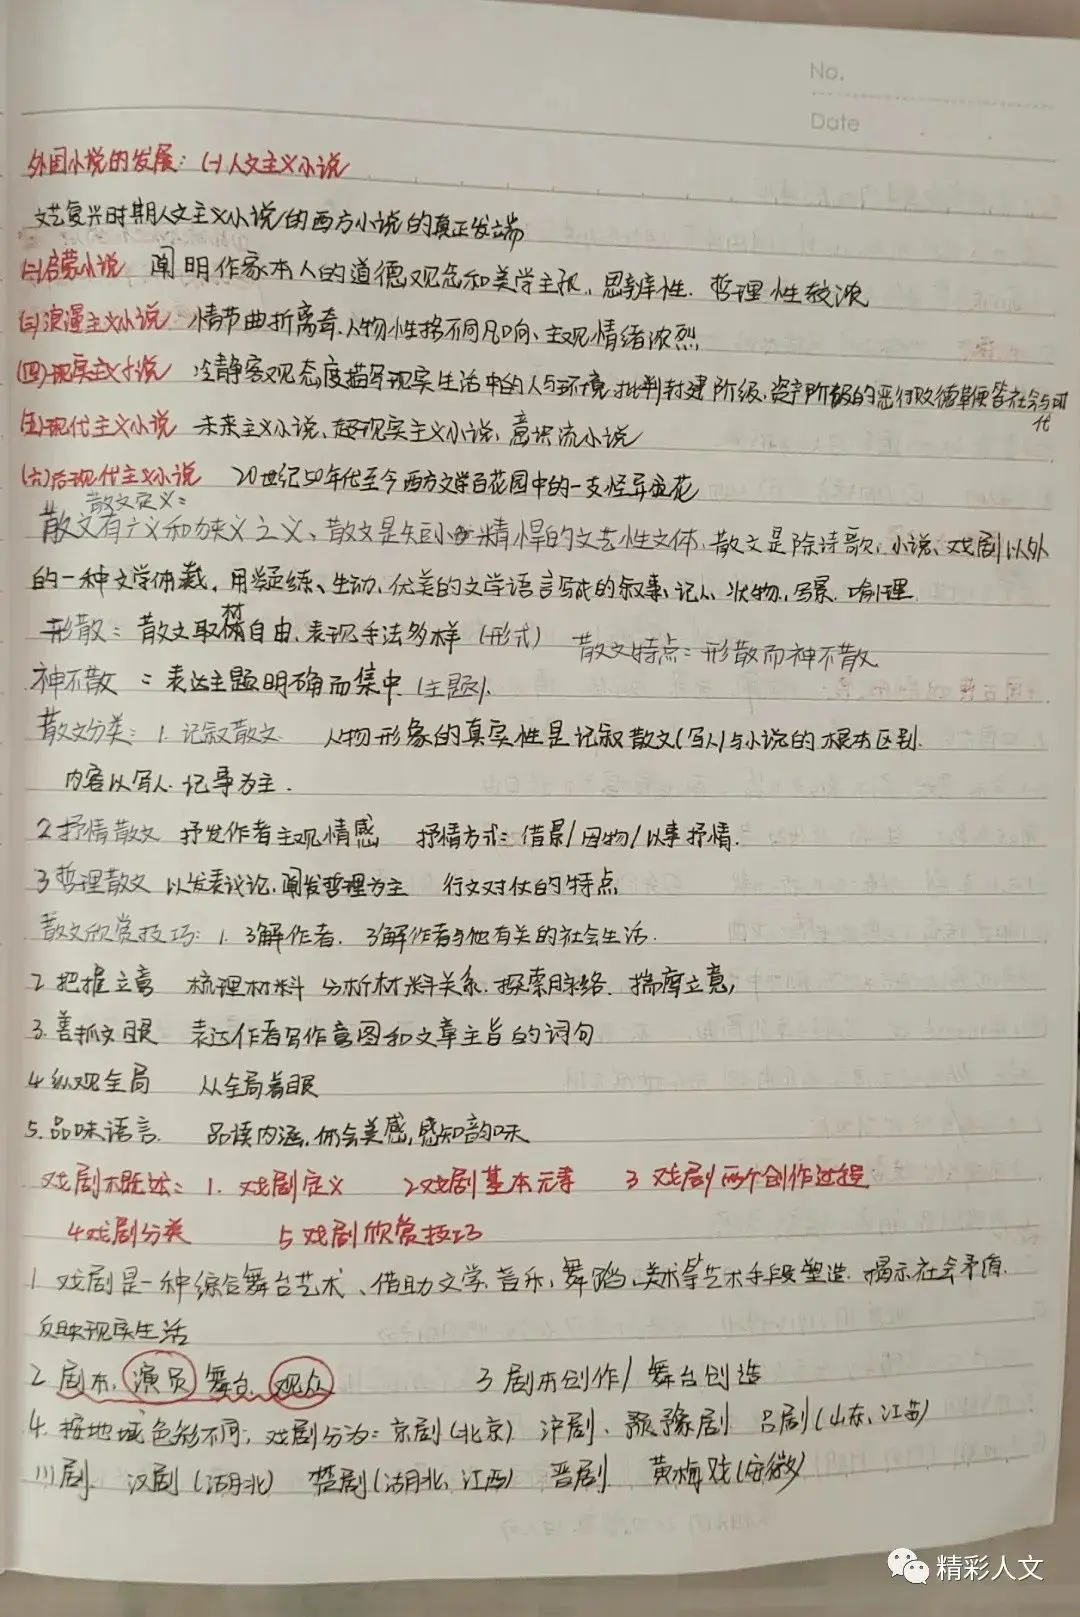 No.
Date
外国小说的发展：(一)人文主义小说
文艺复兴时期人文主义小说的西方小说的真正发端
(二)启蒙小说 阐明作家本人的道德观念和美学主张，思辨性、哲理性较浓
(三)浪漫主义小说 情节曲折离奇、人物性格不同凡响、主观情绪浓烈
(四)现实主义小说 冷静客观态度描写现实生活中的人与环境，批判封建阶级、资产阶级的恶行败德、鞭笞社会与时代
(五)现代主义小说 未来主义小说、超现实主义小说、意识流小说
(六)后现代主义小说 20世纪50年代至今西方文学百花园中的一支怪异蓝花
散文定义：
散文有广义和狭义之义、散文是短小精悍的文艺性文体，散文是除诗歌、小说、戏剧以外
的一种文学体裁，用凝练、生动、优美的文学语言写成的叙事、记人、状物、写景、喻理
形散：散文取材自由、表现手法多样（形式） 散文特点：形散而神不散
神不散：表达主题明确而集中（主题）.
散文分类：1. 记叙散文 人物形象的真实性是记叙散文(写人)与小说的根本区别.
内容以写人、记事为主.
2 抒情散文 抒发作者主观情感 抒情方式：借景/因物/以事抒情.
3 哲理散文 以发表议论，阐发哲理为主 行文对仗的特点
散文欣赏技巧：1. 了解作者. 了解作者与他有关的社会生活.
2 把握立意 梳理材料 分析材料关系、探索脉络、揣摩立意，
3. 善抓文眼 表达作者写作意图和文章主旨的词句
4 纵观全局 从全局着眼
5. 品味语言. 品读内涵，体会美感，感知韵味
戏剧概述：1. 戏剧定义 2 戏剧基本元素 3 戏剧两个创作过程
4 戏剧分类 5 戏剧欣赏技巧
1. 戏剧是一种综合舞台艺术、借助文学、音乐、舞蹈、美术等艺术手段塑造、揭示社会矛盾、
反映现实生活
2 剧本、演员 舞台、观众 3 剧本创作/舞台创造
4. 按地域色彩不同，戏剧分为：京剧（北京） 沪剧、豫剧 吕剧（山东、江苏）
川剧 汉剧（湖北） 楚剧（湖北、江西） 晋剧 黄梅戏（安徽）
精彩人文